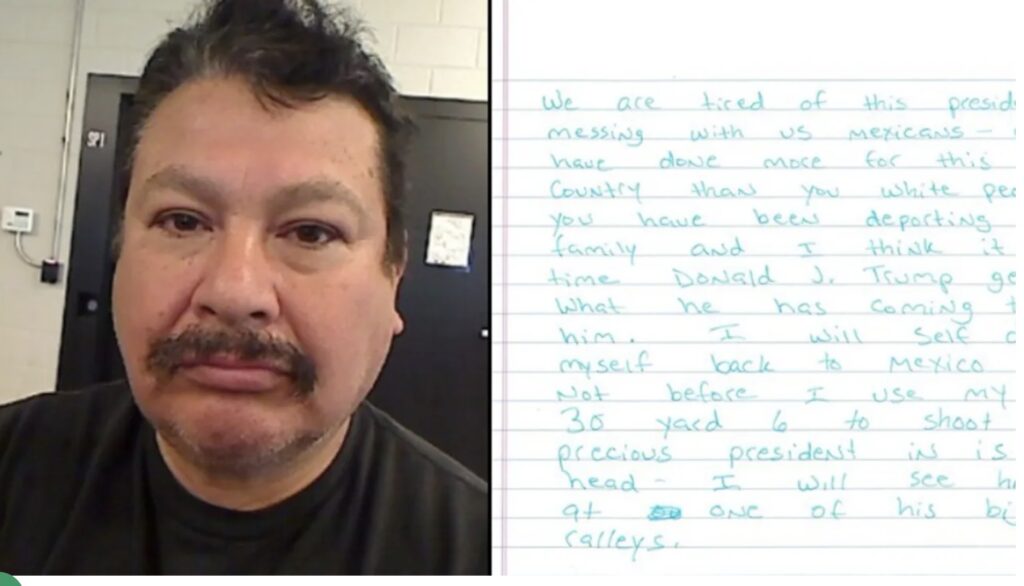 We are tired of this presid
messing with us mexicans -
have done more for this
Country than you white pe
you have been deporting
family and I think it
time Donald J. Trump ge
What he has coming t
him. I will self
myself back to mexico
Not before I use my
30 yard 6 to shoot
precious president in is
head - I will see h
at one of his bi
ralleys.